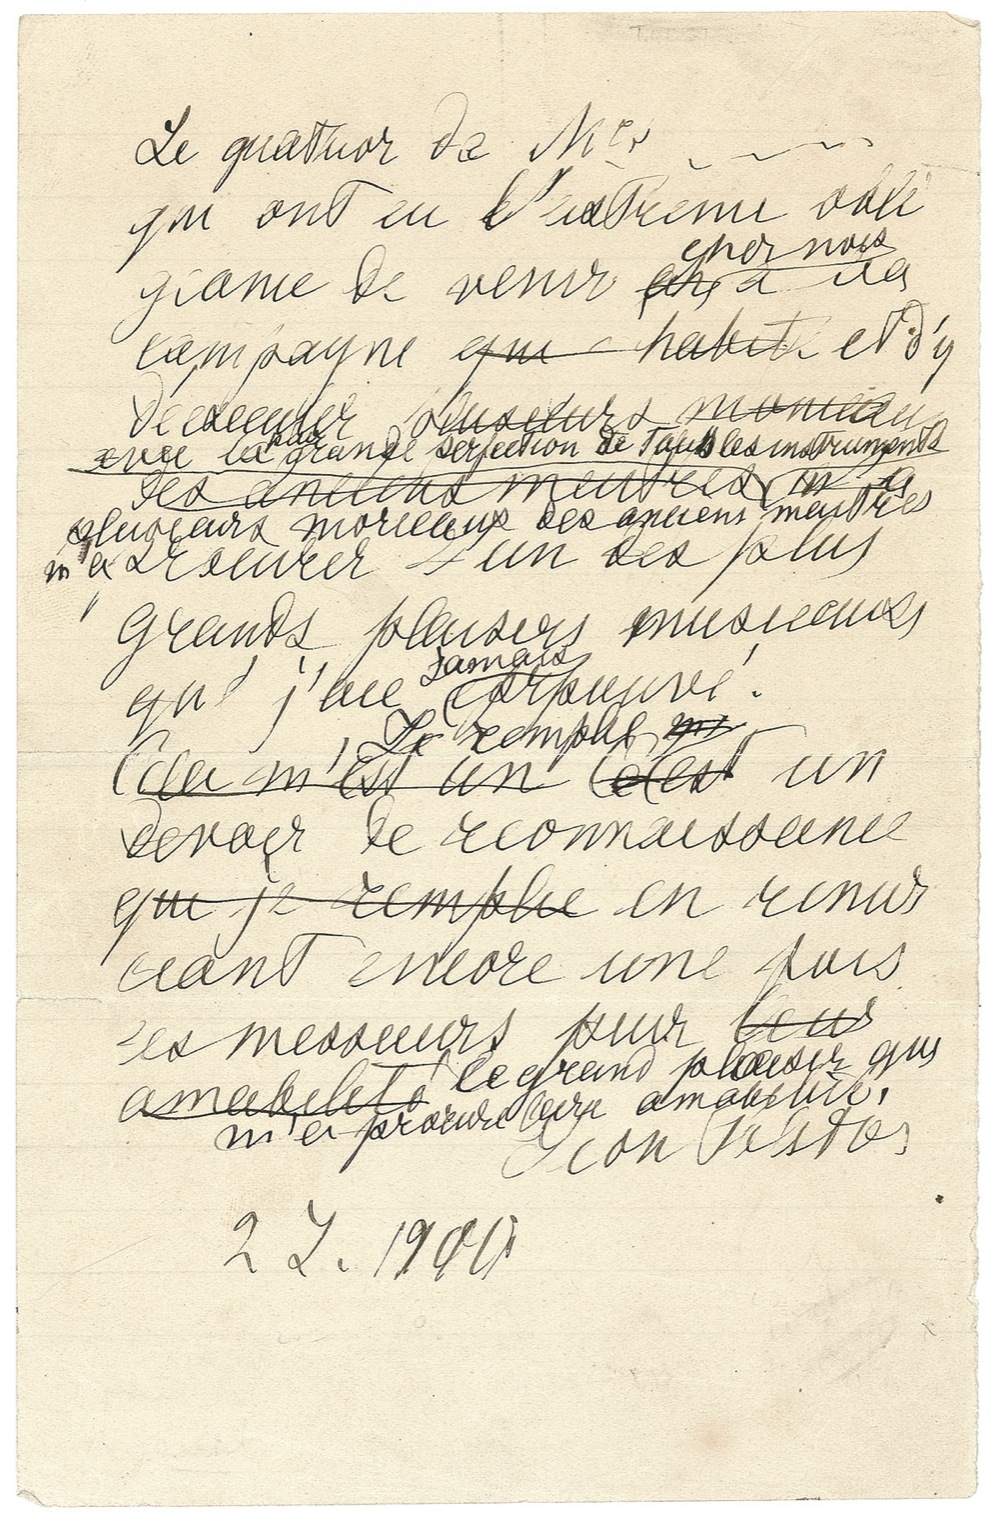 Le quatuor de Mrs
qui ont eu l'extrême obli
chez nous
giance de venir à la
campagne qui habite et d'y
d'executer plusieurs morceaux
avec la plus grande perfection de tous les instruments
des anciens meutres m'a
plusieurs morceaux des anciens meutres
m'a procurer l'un des plus
grands plaisirs musicaux
jamais
que j'aie éprouvé.
Je remplie
Cela m'est un c'est un
devoir de reconnaissance
que je remplie en remer
ciant encore une fois
ces messieurs pour leur
amabilité le grand plaisir que
m'a procuré leur amabilité.
Léon Tolstoy
1909